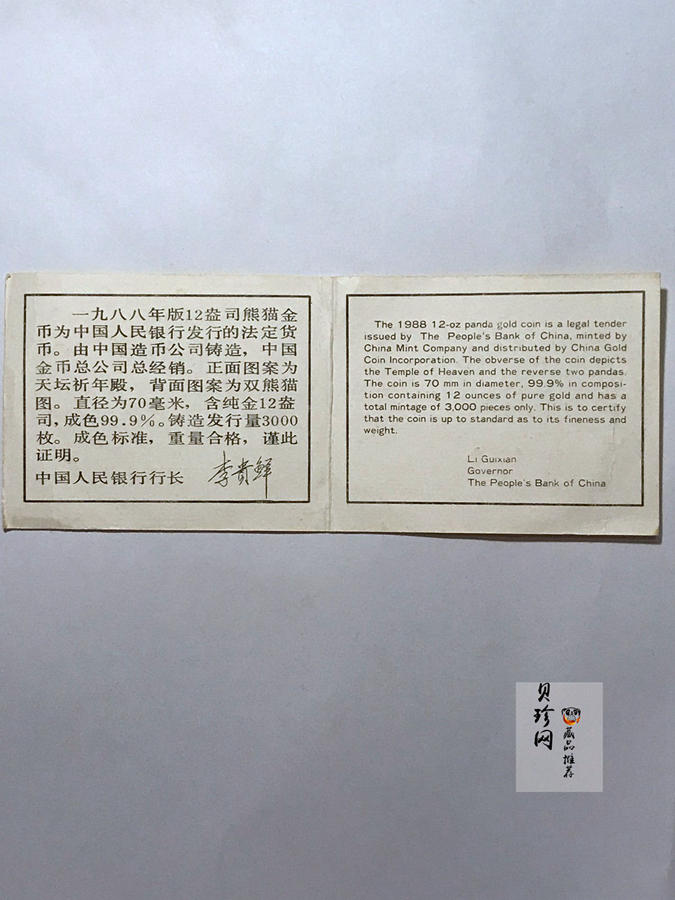 一九八八年版12盎司熊猫金
币为中国人民银行发行的法定货
币。由中国造币公司铸造，中国
金币总公司总经销。正面图案为
天坛祈年殿，背面图案为双熊猫
图。直径为70毫米，含纯金12盎
司，成色99.9%。铸造发行量3000
枚。成色标准，重量合格，谨此
证明。
中国人民银行行长 李贵鲜
The 1988 12-oz panda gold coin is a legal tender
issued by The People's Bank of China, minted by
China Mint Company and distributed by China Gold
Coin Incorporation. The obverse of the coin depicts
the Temple of Heaven and the reverse two pandas.
The coin is 70 mm in diameter, 99.9% in composi-
tion containing 12 ounces of pure gold and has a
total mintage of 3,000 pieces only. This is to certify
that the coin is up to standard as to its fineness and
weight.
Li Guixian
Governor
The People's Bank of China
贝珍网
藏品推荐